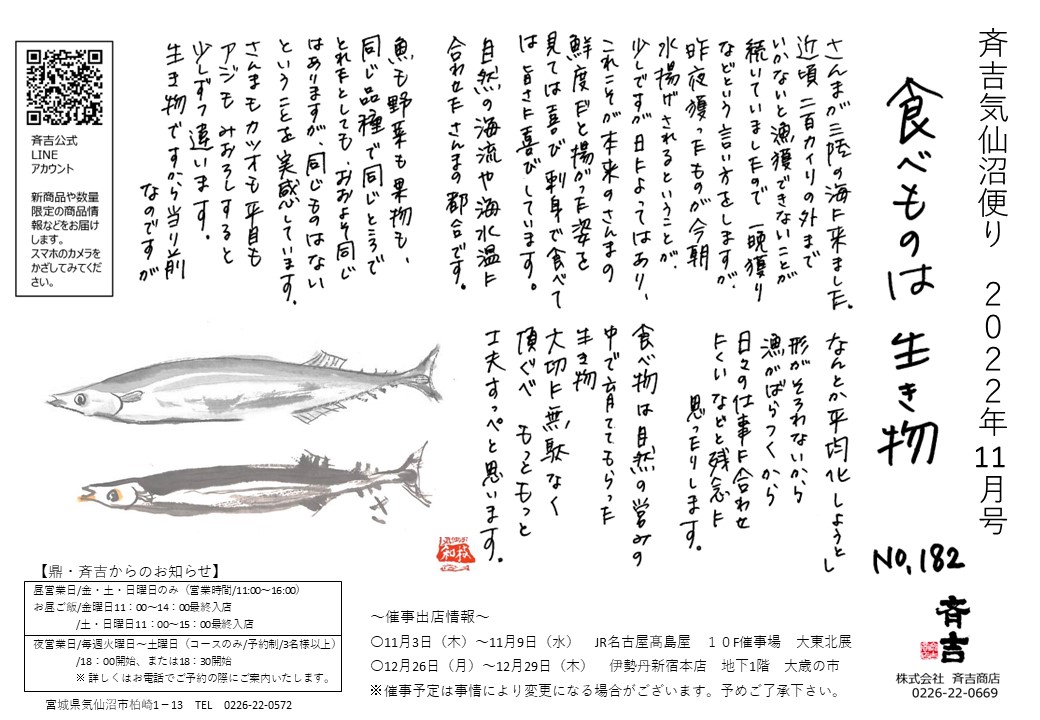 斉吉気仙沼便り　２０２２年11月号
食べものは 生き物
NO,182
さんまが三陸の海に来ました。
近頃 二百カイリの外まで
いかないと漁獲できないことが
続いていましたので 一晩獲り
などという言い方をしますが、
昨夜獲ったものが今朝
水揚げされるということが、
少しですが日によってはあり、
これこそが本来のさんまの
鮮度だと揚がった姿を
見ては喜び 刺身で食べて
は 旨さに喜びしています。
自然の海流や海水温に
合わせたさんまの都合です。
魚も野菜も果物も、
同じ品種で同じところで
とれたとしても、おおよそ同じ
はありますが、同じものはない
ということを 実感しています。
さんまもカツオも平目も
アジも みおろしすると
少しずつ違います。
生き物ですから当り前
なのですが
なんとか平均化しようとし
形がそろわないから
漁がばらつくから
日々の仕事に合わせ
にくい などと残念に
思ったりします。
食べ物は自然の営みの
中で育ててもらった
生き物
大切に無駄なく
頂ぐべ もっともっと
工夫すっぺと思います。
斉吉公式
LINE
アカウント
新商品や数量
限定の商品情
報などをお届け
します。
スマホのカメラを
かざしてみてくだ
さい。
【鼎・斉吉からのお知らせ】
昼営業日/金・土・日曜日のみ（営業時間/11:00～16:00）
お昼ご飯/金曜日11：00～14：00最終入店
/土・日曜日11：00～15：00最終入店
夜営業日/毎週火曜日～土曜日（コースのみ/予約制/3名様以上）
/18：00開始、または18：30開始
※ 詳しくはお電話でご予約の際にご案内いたします。
宮城県気仙沼市柏崎1－13　TEL　0226-22-0572
～催事出店情報～
〇11月3日（木）～11月9日（水）　JR名古屋髙島屋　１０F催事場　大東北展
〇12月26日（月）～12月29日（木）　伊勢丹新宿本店　地下1階　大歳の市
※催事予定は事情により変更になる場合がございます。予めご了承下さい。
斉吉
株式会社 斉吉商店
0226-22-0669